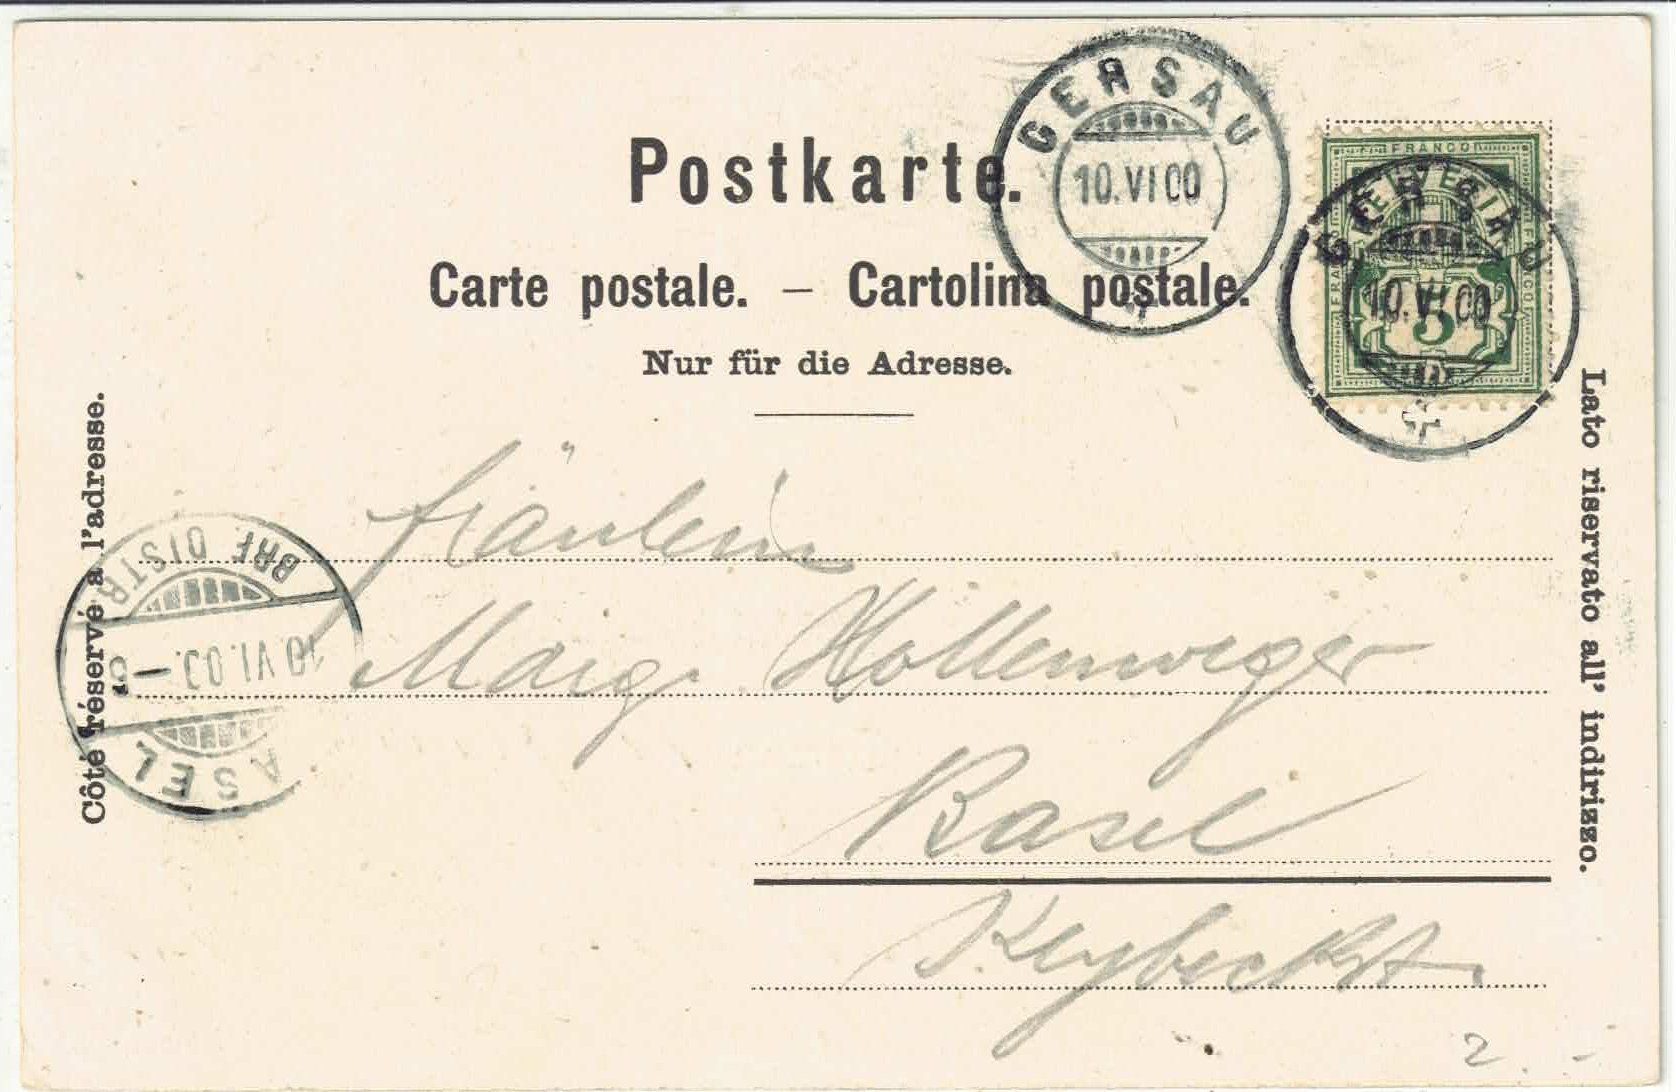 Postkarte.
Carte postale. – Cartolina postale.
Nur für die Adresse.
GERSAU
10.VI 00
FRANCO
HELVETIA
FRANCO
FRANCO
5
GERSAU
10.VI 00
Côté réservé à l'adresse.
Lato riservato all' indirizzo.
BRF. DISTR.
10.VI.00. –
BASEL
Fräulein
Marg. Hollenweger
Basel
Klybeckst.
2